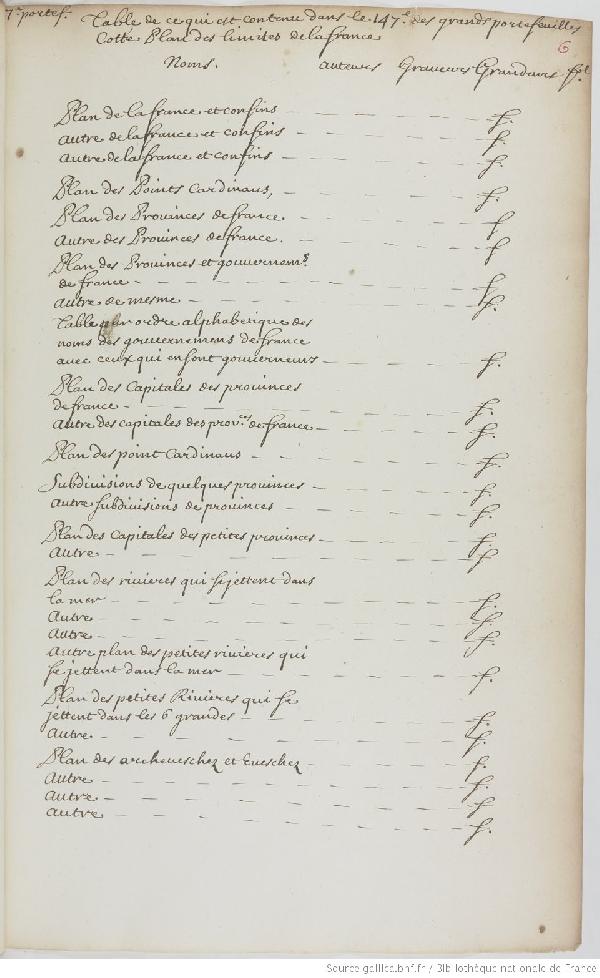 7.e portef. Table de ce qui est contenu dans le 147.e des grands portefeuilles
6
Cotté Plan des limites de la france
Noms. auteurs Graveurs Grandeurs
Plan de la france et confins — f.
autre de la france et confins — f.
autre de la france et confins — f.
Plan des Points Cardinaux, — f.
Plan des Provinces de france. — f
autre des Provinces de france. — f
Plan des Provinces et gouvernem.s
de france — f.
autre de mesme — f.
Table par ordre alphabetique des
noms des gouvernemens de france
avec ceux qui en sont gouverneurs — f.
Plan des Capitales des provinces
de france — f.
autre des capitales des prov.ces de france — f.
Plan des point Cardinaux — f.
Subdivisions de quelques provinces — f.
autre subdivisions de provinces — f.
Plan des Capitales des petites provinces — f.
autre — f
Plan des rivieres qui se jettent dans
la mer — f.
autre — f.
autre — f.
autre plan des petites rivieres qui
se jettent dans la mer — f.
Plan des petites Rivieres qui se
jettent dans les 6 grandes — f.
autre — f.
Plan des archeveschez et Eveschez — f.
autre — f.
autre — f
autre — f.
Source gallica.bnf.fr / Bibliothèque nationale de France